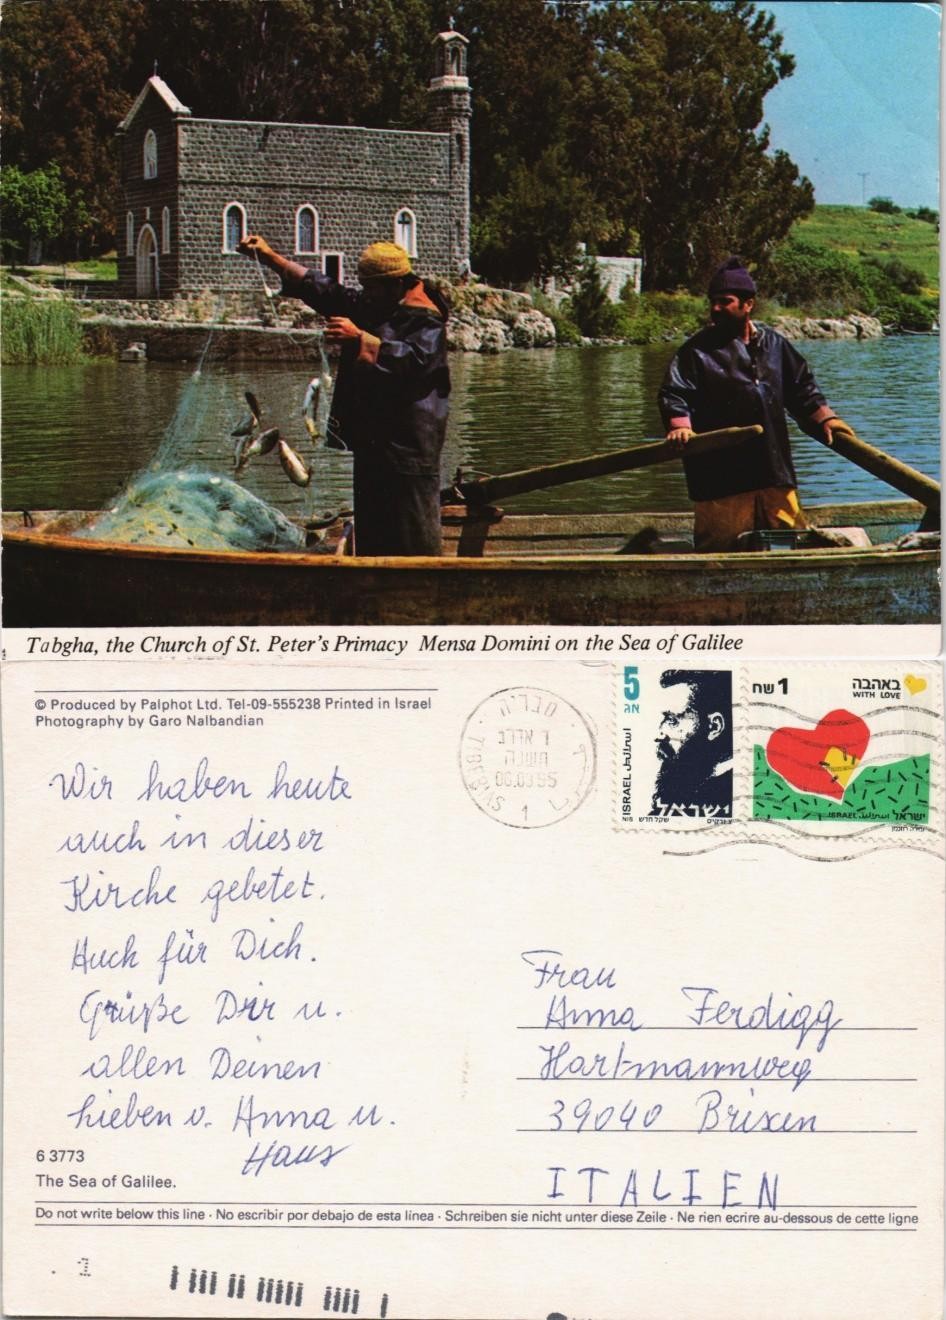 Tabgha, the Church of St. Peter's Primacy Mensa Domini on the Sea of Galilee
© Produced by Palphot Ltd. Tel-09-555238 Printed in Israel
Photography by Garo Nalbandian
Wir haben heute
auch in dieser
Kirche gebetet.
Auch für Dich.
Grüße Dir u.
allen Deinen
lieben v. Anna u.
Hans
6 3773
The Sea of Galilee.
טבריה
ו אדר ב
תשנה
06.03.95
TIBERIAS
1
5
אג
ISRAEL
اسرائيل
ישראל
שקל חדש
NIS
1 שח
באהבה
WITH LOVE
ISRAEL اسرائيل ישראל
Frau
Anna Ferdigg
Hartmannweg
39040 Brixen
ITALIEN
Do not write below this line · No escribir por debajo de esta línea · Schreiben sie nicht unter diese Zeile · Ne rien ecrire au-dessous de cette ligne
1